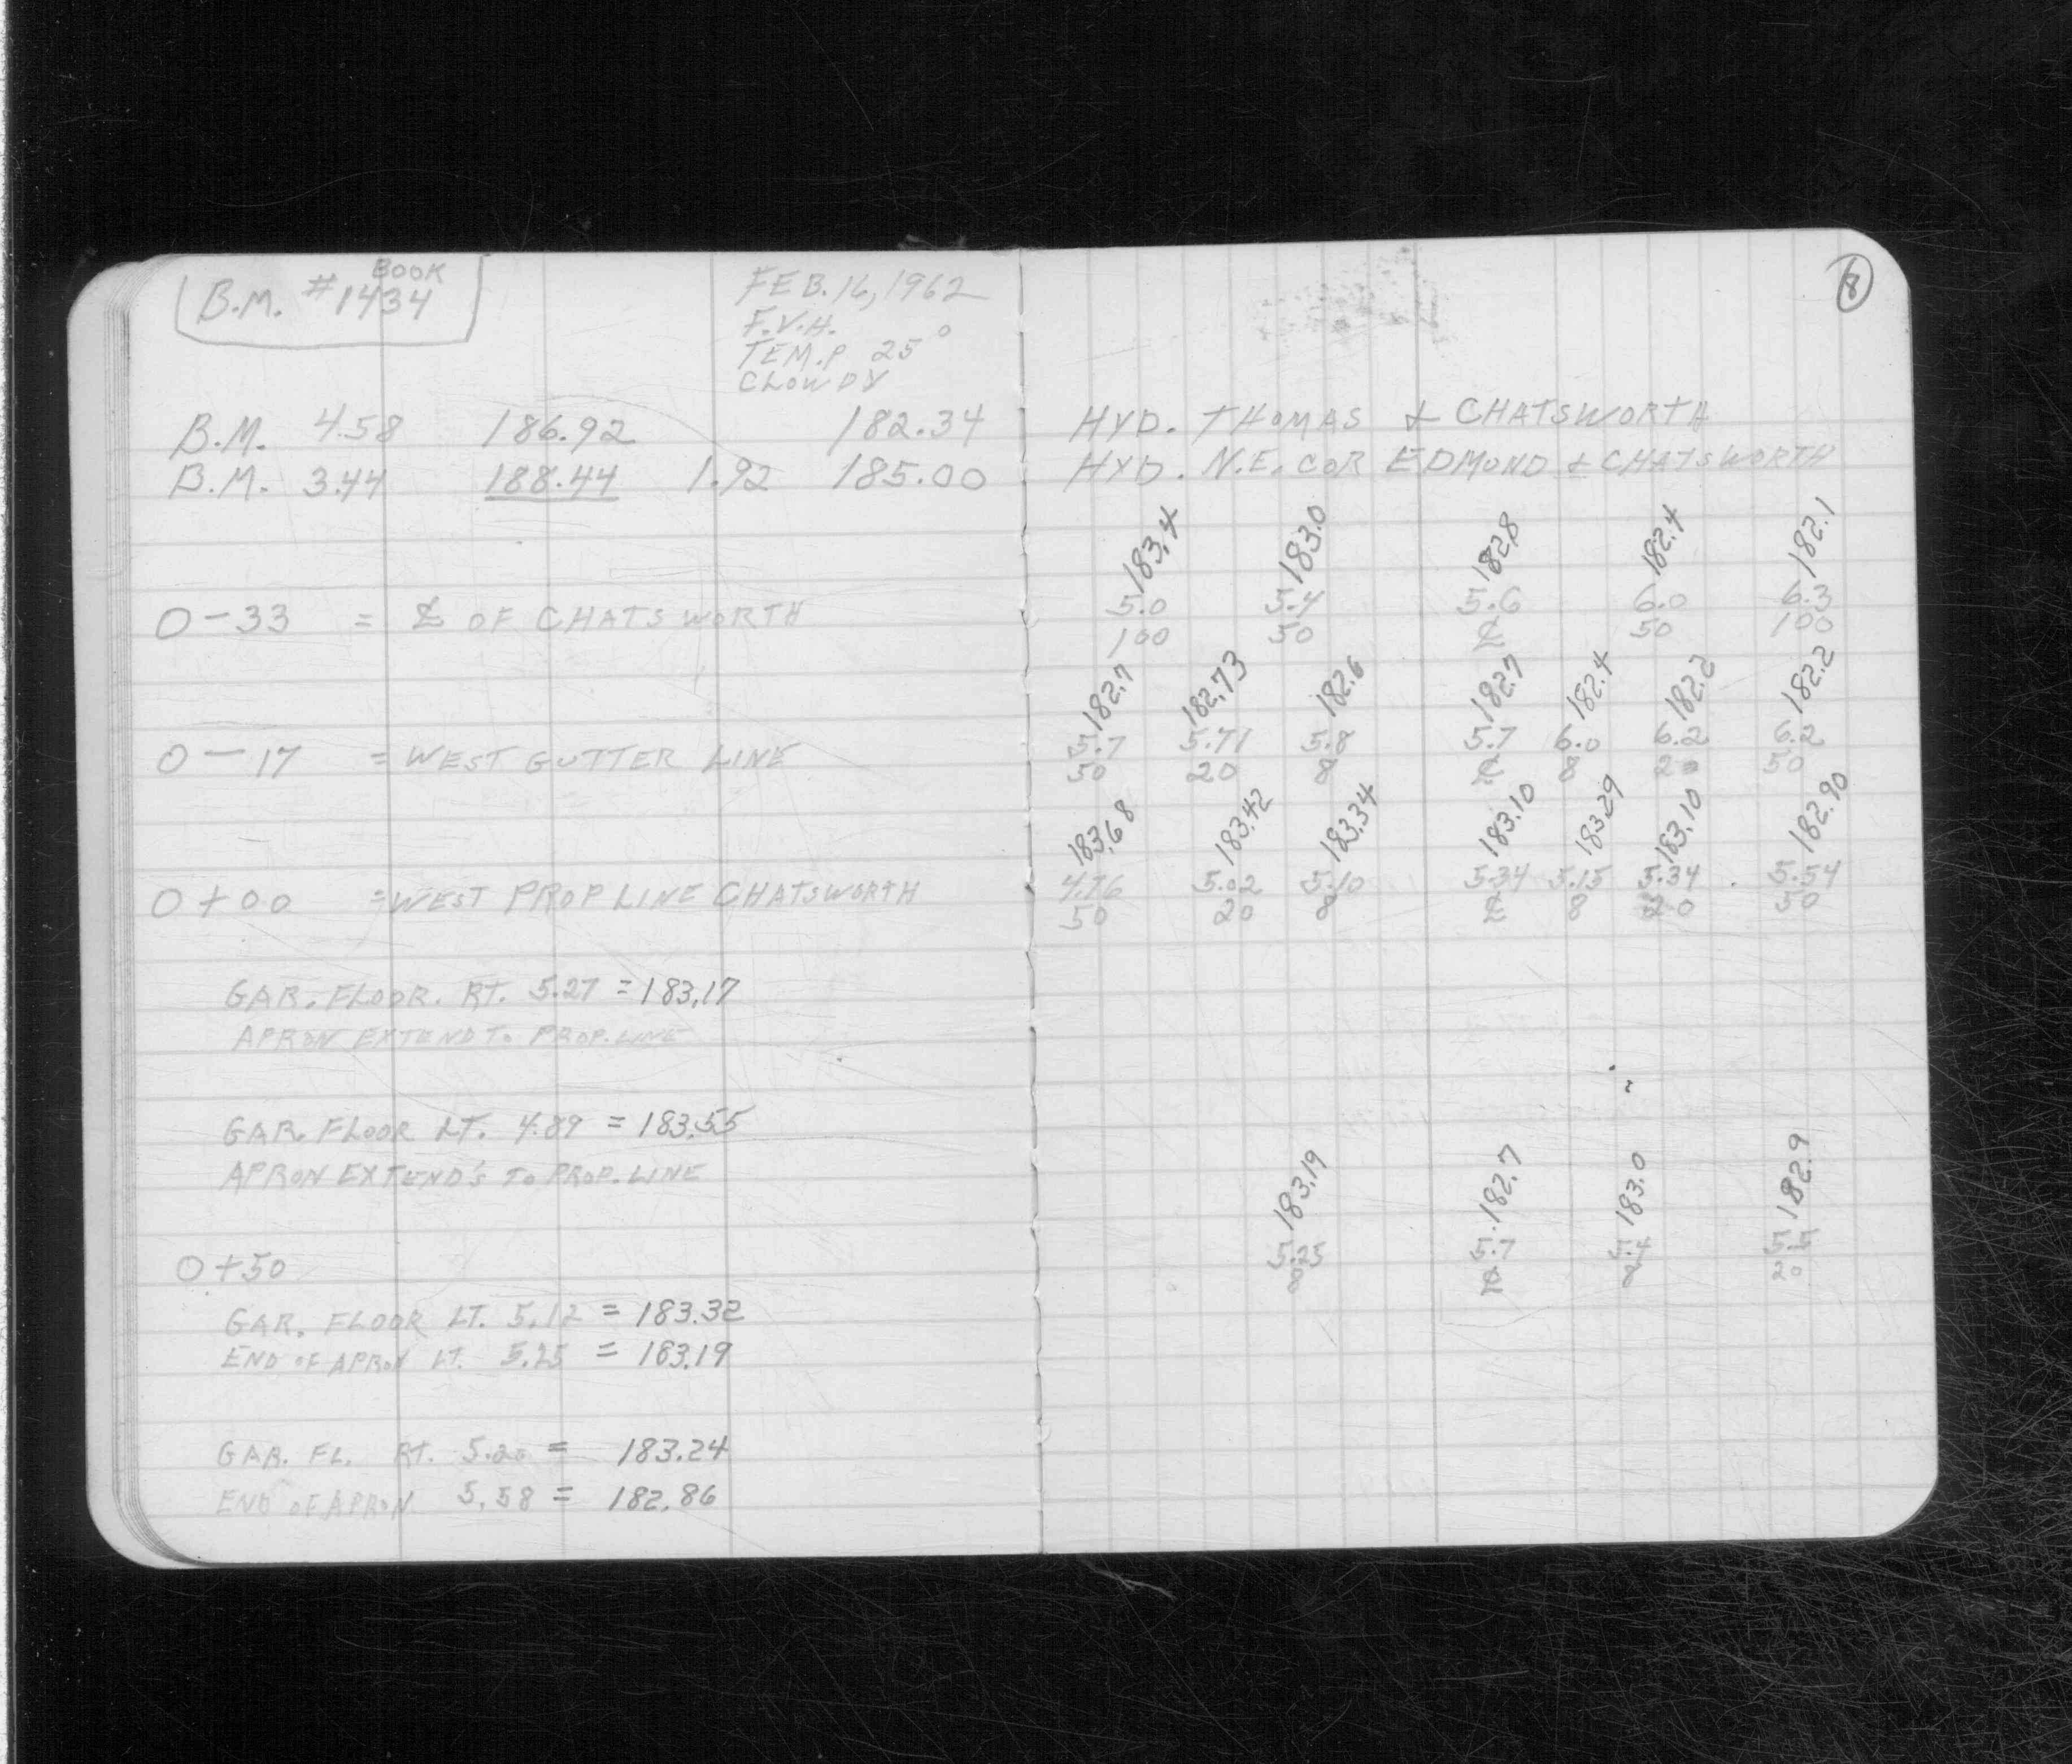 BOOK
B.M. #1434
FEB. 16, 1962
F.V.H.
TEMP. 25°
CLOWDY
B.M. 4.58 186.92 182.34
B.M. 3.44 188.44 1.92 185.00
0-33 = ℄ OF CHATSWORTH
0-17 = WEST GUTTER LINE
0+00 = WEST PROP LINE CHATSWORTH
GAR. FLOOR. RT. 5.27 = 183.17
APRON EXTEND TO PROP. LINE
GAR. FLOOR LT. 4.89 = 183.55
APRON EXTEND'S TO PROP. LINE
0+50
GAR. FLOOR LT. 5.12 = 183.32
END OF APRON LT. 5.25 = 183.19
GAR. FL. RT. 5.20 = 183.24
END OF APRON 5.58 = 182.86
8
HYD. THOMAS & CHATSWORTH
HYD. N.E. COR EDMUND & CHATSWORTH
183.4 183.0 182.8 182.4 182.1
5.0 5.4 5.6 6.0 6.3
100 50 ℄ 50 100
182.7 182.73 182.6 182.7 182.4 182.2 182.2
5.7 5.71 5.8 5.7 6.0 6.2 6.2
50 20 8 ℄ 8 20 50
183.68 183.42 183.34 183.10 183.29 183.10 182.90
4.76 5.02 5.10 5.34 5.15 5.34 5.54
50 20 8 ℄ 8 20 50
183.19 182.7 183.0 182.9
5.25 5.7 5.4 5.5
8 ℄ 8 20